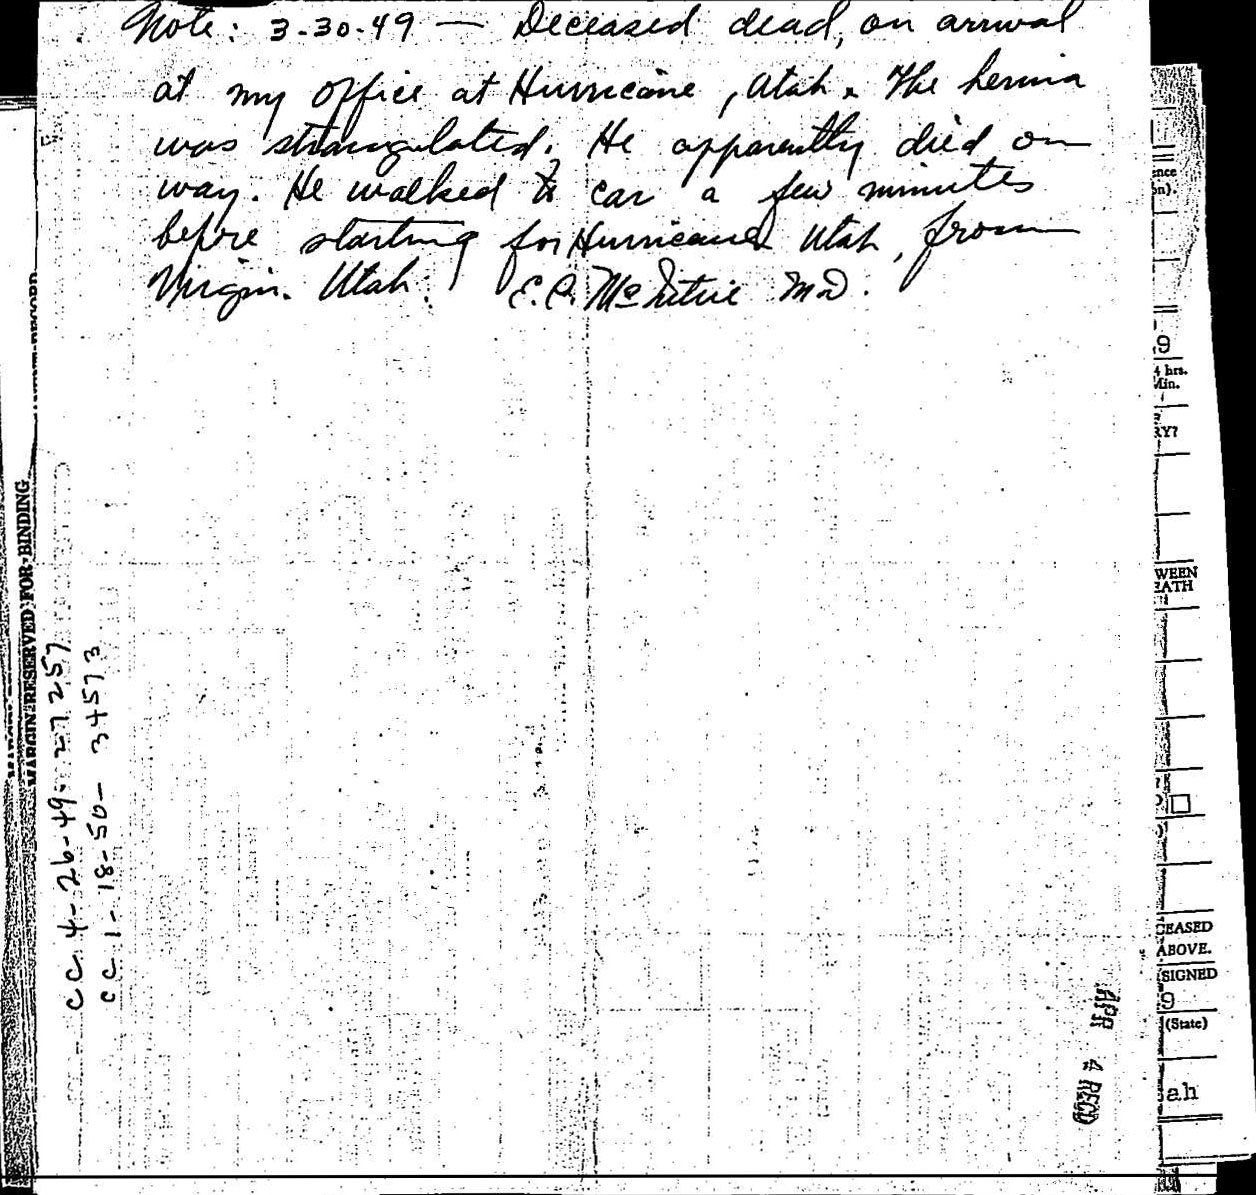 Note: 3-30-49 — Deceased dead, on arrival
at my office at Hurricane, Utah. The hernia
was strangulated. He apparently died on
way. He walked to car a few minutes
before starting for Hurricane Utah, from
Virgin. Utah. E.C. McIntire MD.
MARGIN RESERVED FOR BINDING
CC 4-26-49-27257
CC 1-18-50-34573
APR 4 RECD
9
4 hrs.
Min.
RY?
WEEN
EATH
CEASED
ABOVE.
SIGNED
9
(State)
ah